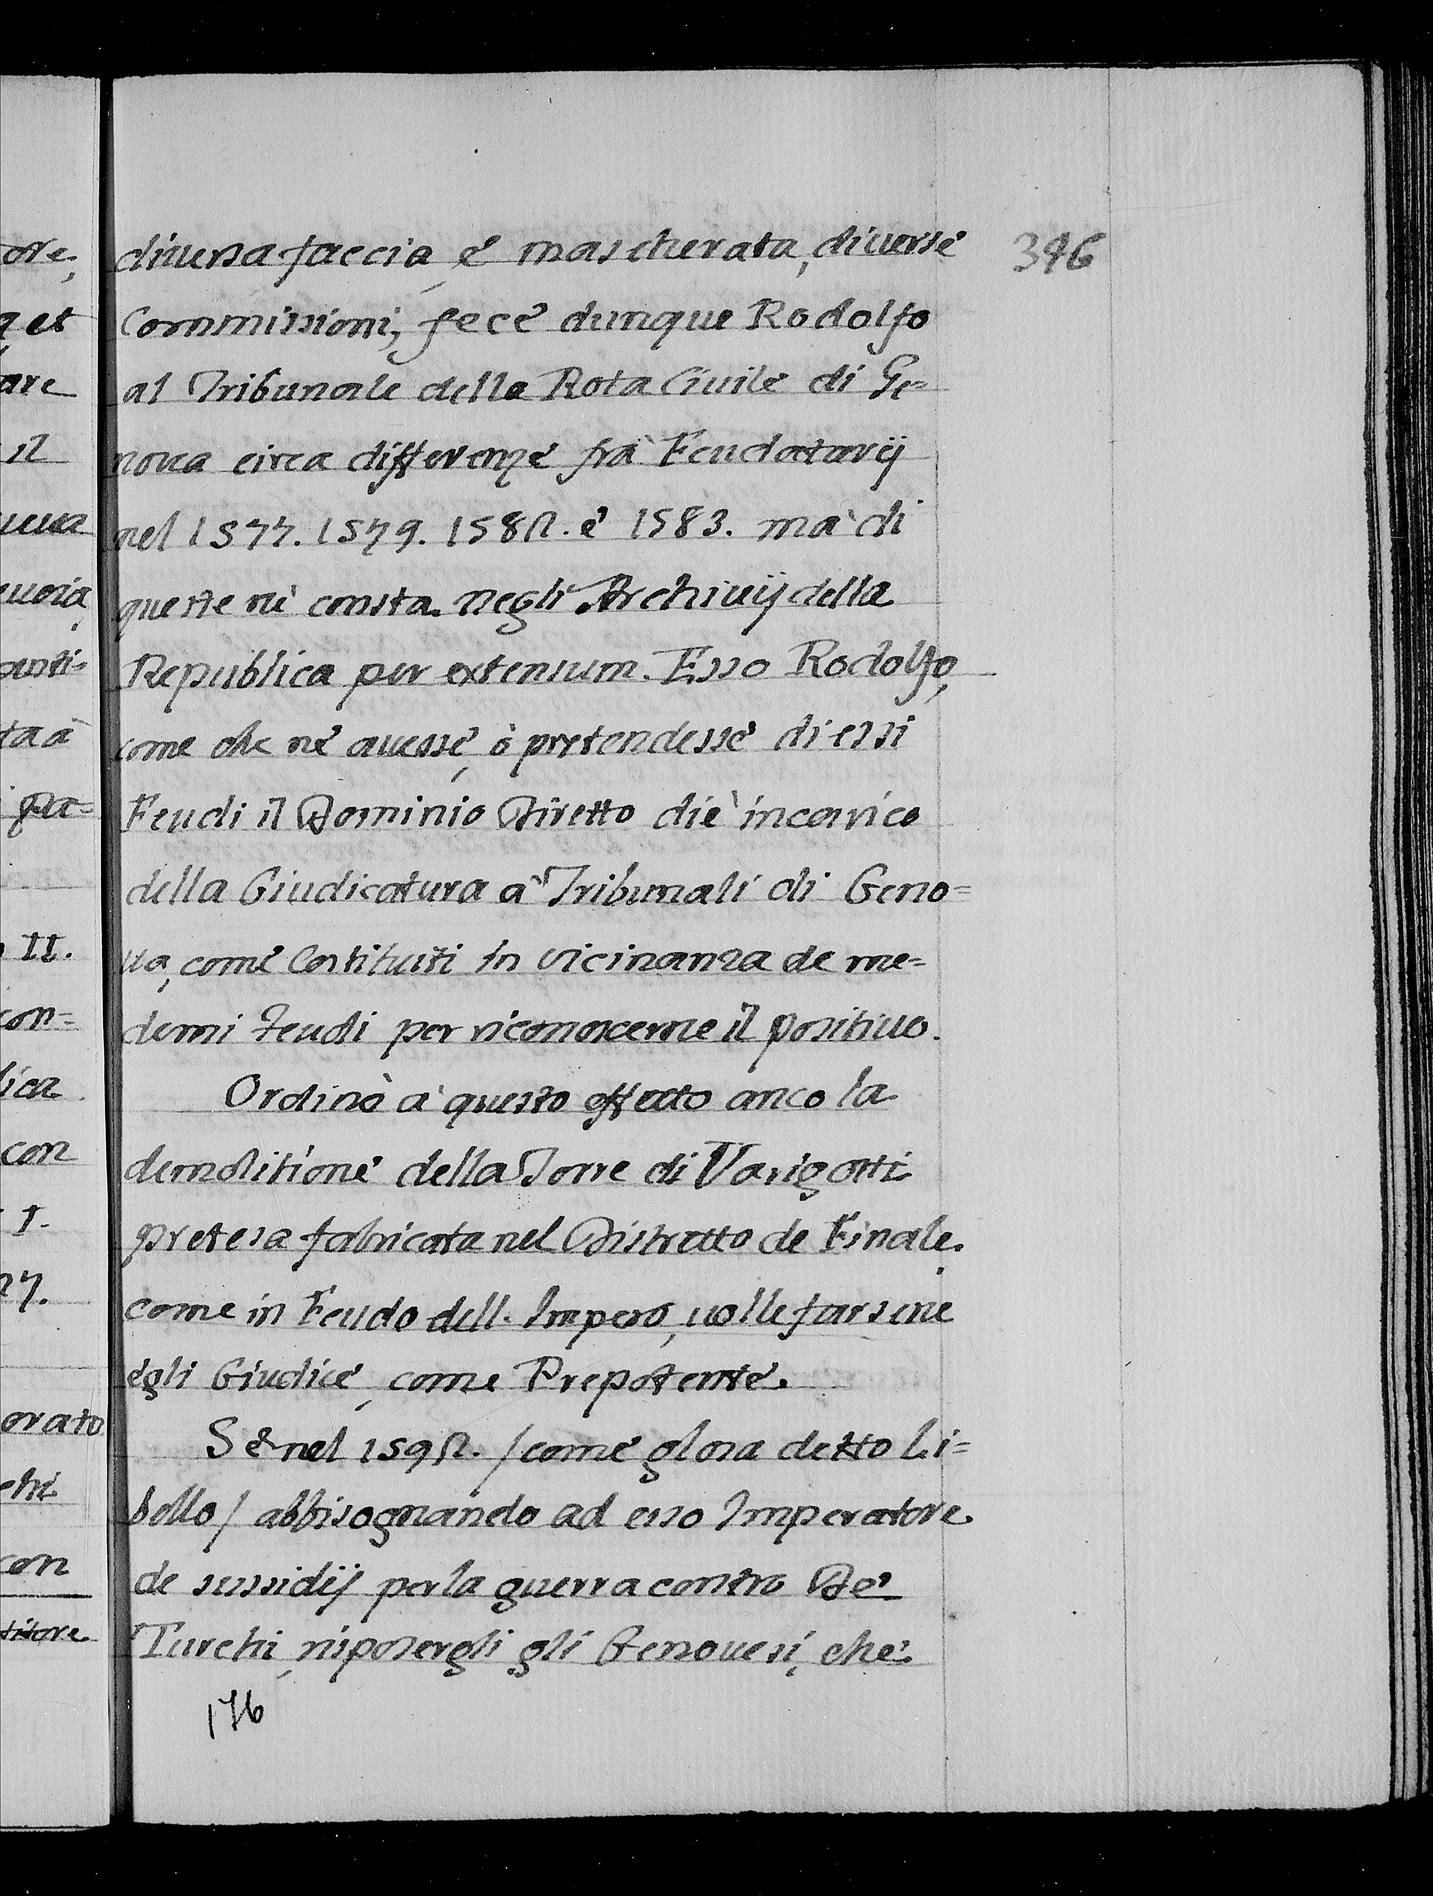 diuersa faccia, e mascherata, diuerse 396
Commissioni, fece dunque Rodolfo
al Tribunale della Rota Ciuile di Ge=
noua circa differenze frà Feudatarij
nel 1577. 1579. 1582. e 1583. mà di
queste nè consta negli Archiuij della
Republica per extensum. Esso Rodolfo,
come che nè auesse, ò pretendesse di essi
Feudi il Dominio Diretto diè incarico
della Giudicatura à Tribunali di Geno=
ua, come Costituiti in vicinanza de me=
demi feudi per riconoscerne il positiuo.
Ordinò à questo effetto anco la
demolitione della Torre di Varigotti
pretesa fabricata nel Distretto de Finale.
come in Feudo dell. Impero, uolle farsene
egli Giudice, come Prepotente.
Se nel 1592. / come glosa detto Li=
bello / abbisognando ad esso Imperatore
de sussidij per la guerra contro De'
Turchi, risposergli gli Genouesi, che
176
ore,
et
are
il
ueua
ueria,
ta à
pa=
II.
con=
lica
con
I.
27.
orato
chi
con
titore